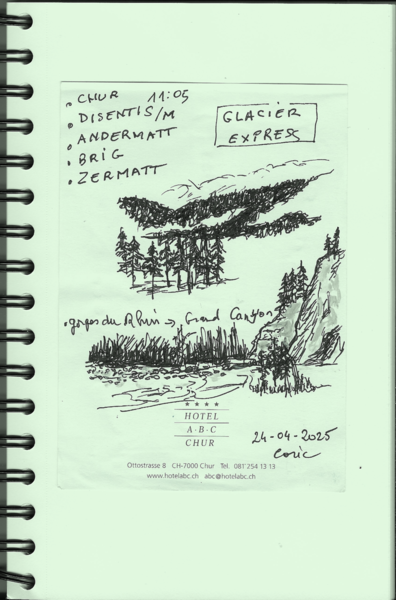 • CHUR 11:05
• DISENTIS/M
• ANDERMATT
• BRIG
• ZERMATT
GLACIER
EXPRESS
• gorges du Rhin → Grand Canyon
HOTEL
A·B·C
CHUR
24-04-2025
Ottostrasse 8 CH-7000 Chur Tel. 081'254 13 13
www.hotelabc.ch abc@hotelabc.ch